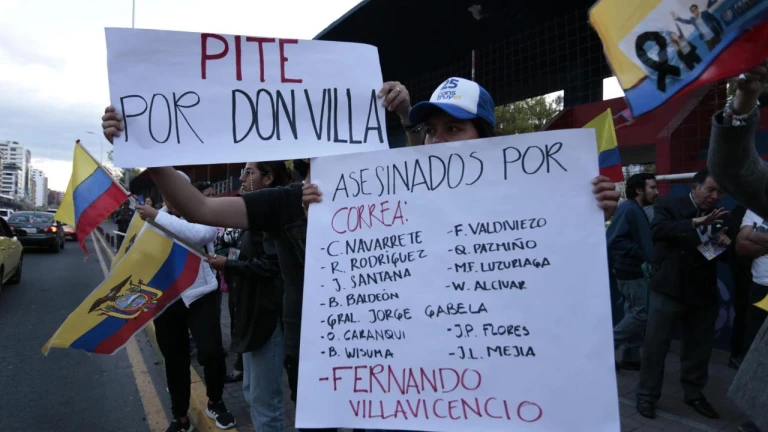 PITE
POR DON VILLA
25
CONSTRUYE
ASESINADOS POR
CORREA:
- C. NAVARRETE
- R. RODRÍGUEZ
- J. SANTANA
- B. BALDEÓN
- GRAL. JORGE GABELA
- O. CARANQUI
- B. WISUMA
- F. VALDIVIEZO
- Q. PAZMIÑO
- MF. LUZURIAGA
- W. ALCIVAR
- J.P. FLORES
- J.L. MEJIA
- FERNANDO
VILLAVICENCIO